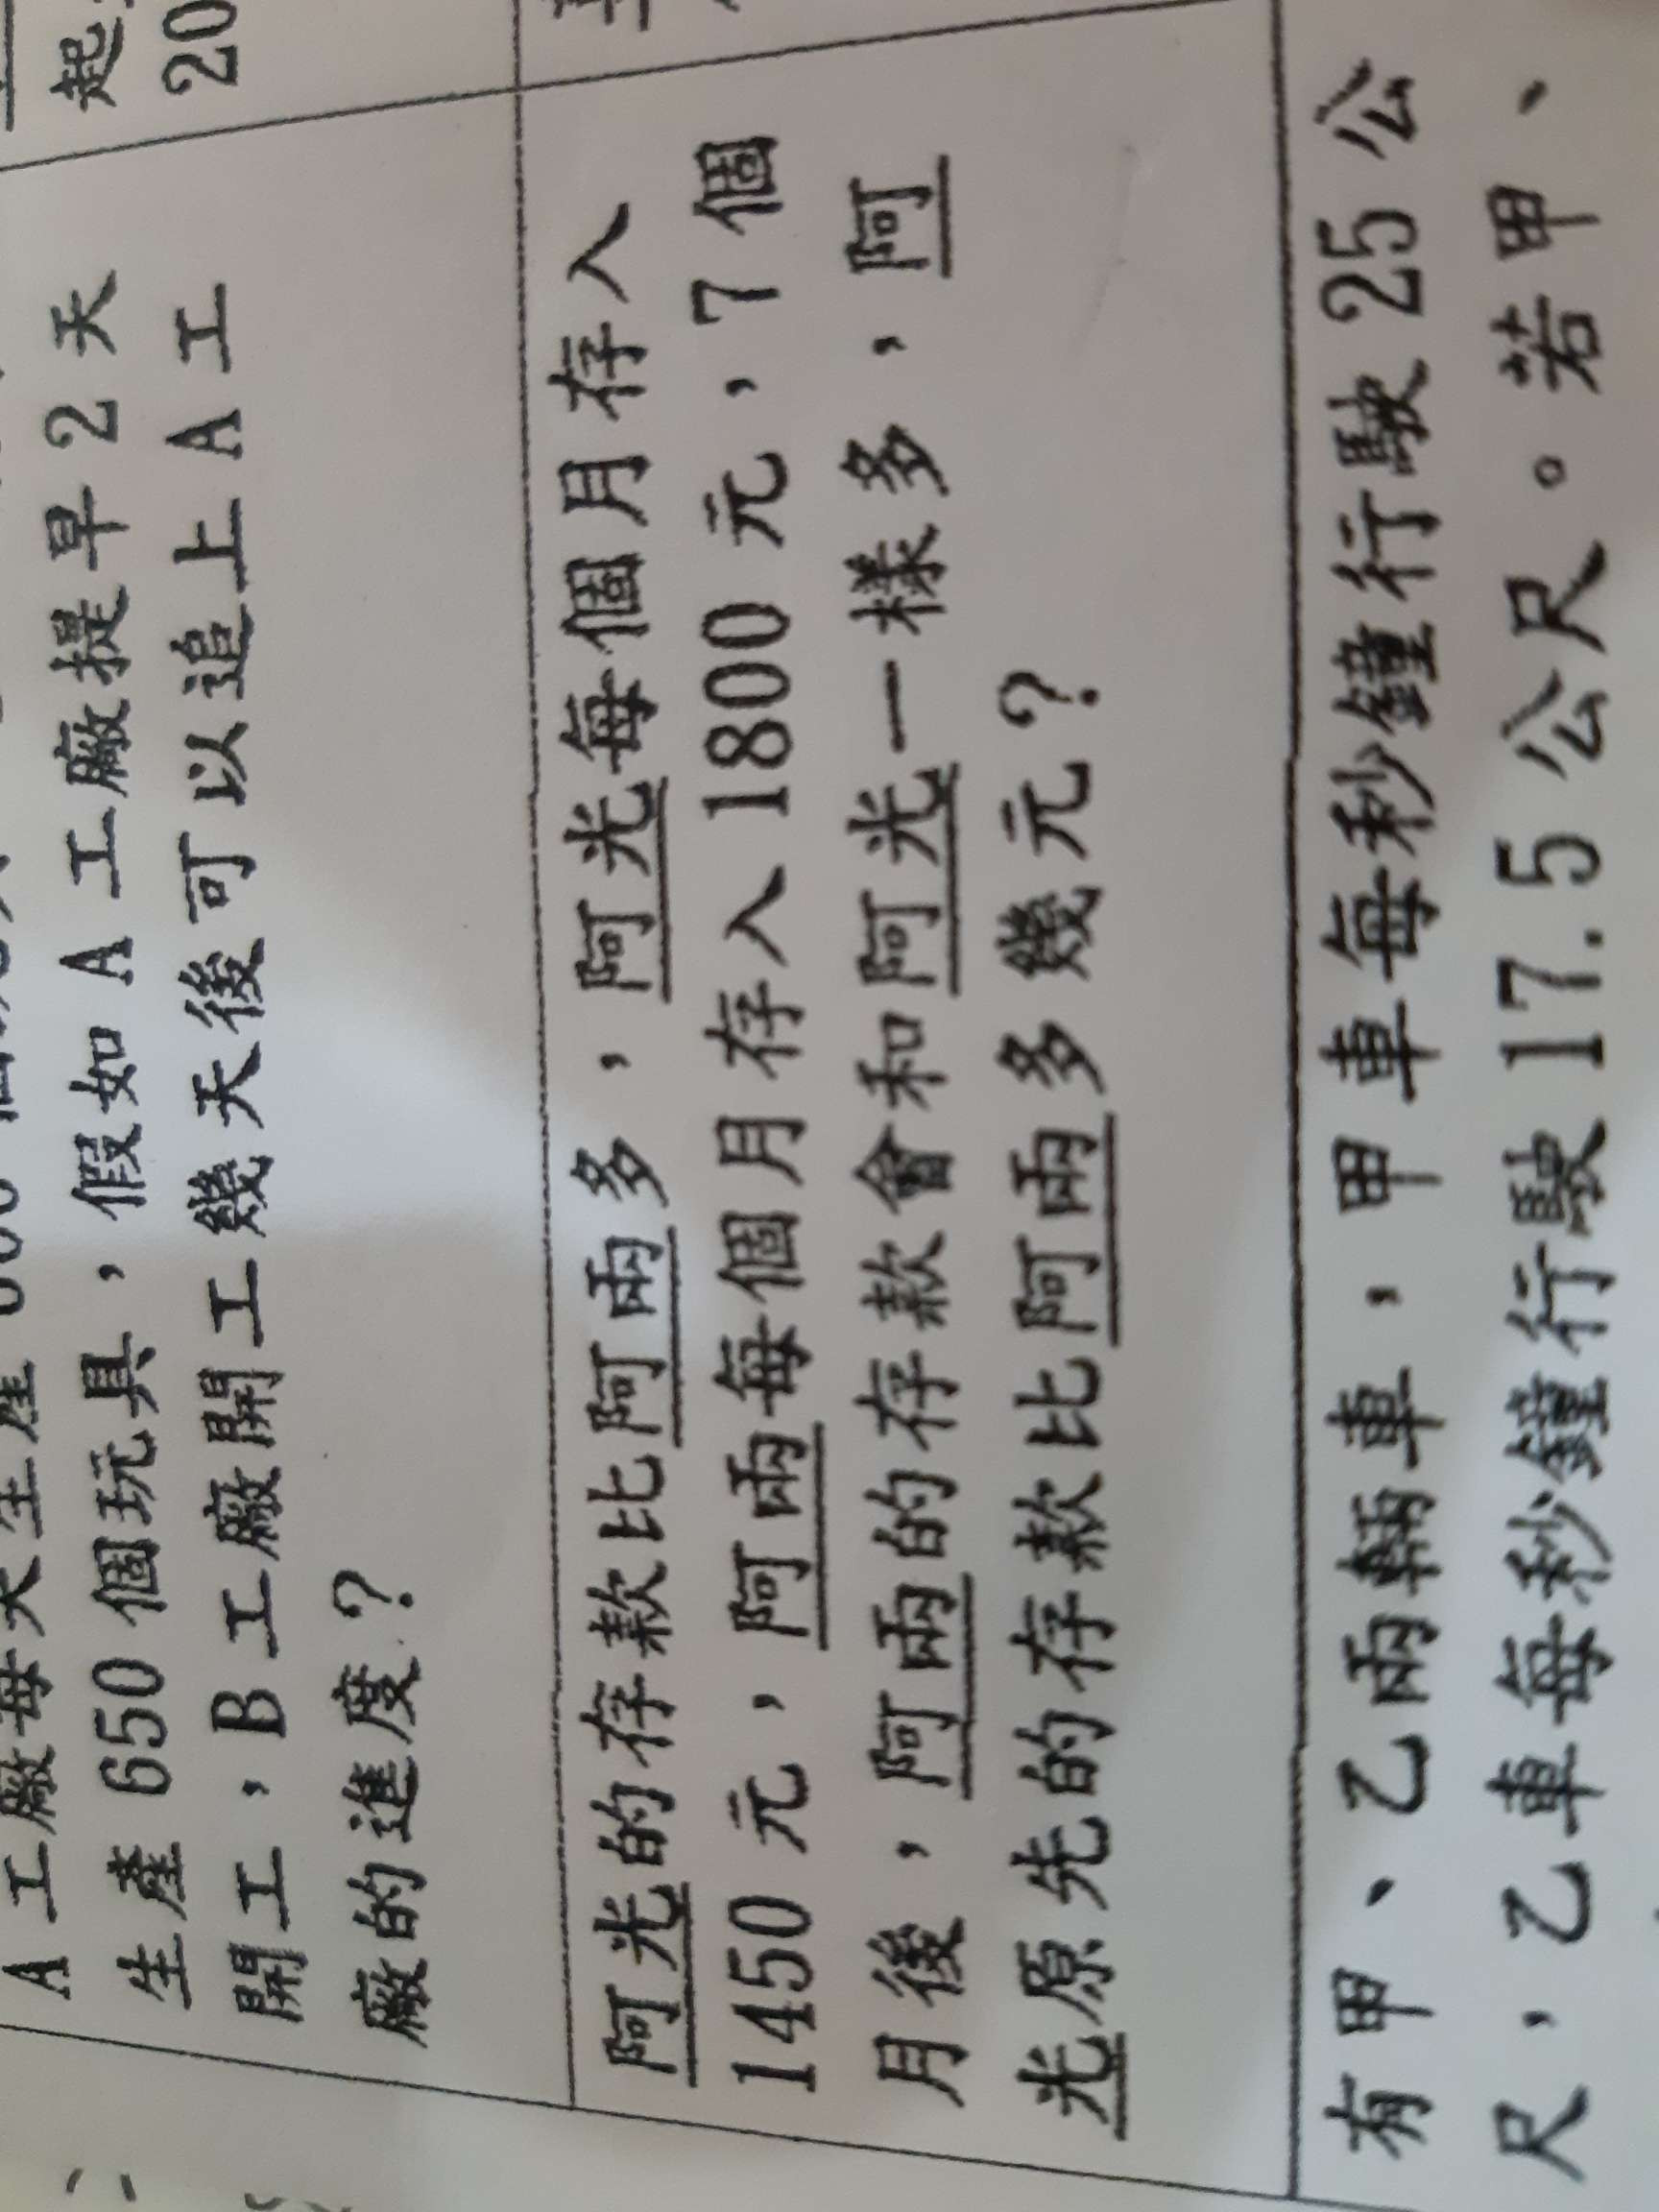 A 工廠每天生產
生產 650 個玩具，假如 A 工廠提早 2 天
開工，B 工廠開工幾天後可以追上 A 工
廠的進度？
起
20
阿光的存款比阿兩多，阿光每個月存入
1450 元，阿兩每個月存入 1800 元，7 個
月後，阿兩的存款會和阿光一樣多，阿
光原先的存款比阿兩多幾元？
有甲、乙兩輛車，甲車每秒鐘行駛 25 公
尺，乙車每秒鐘行駛 17.5 公尺。若甲、